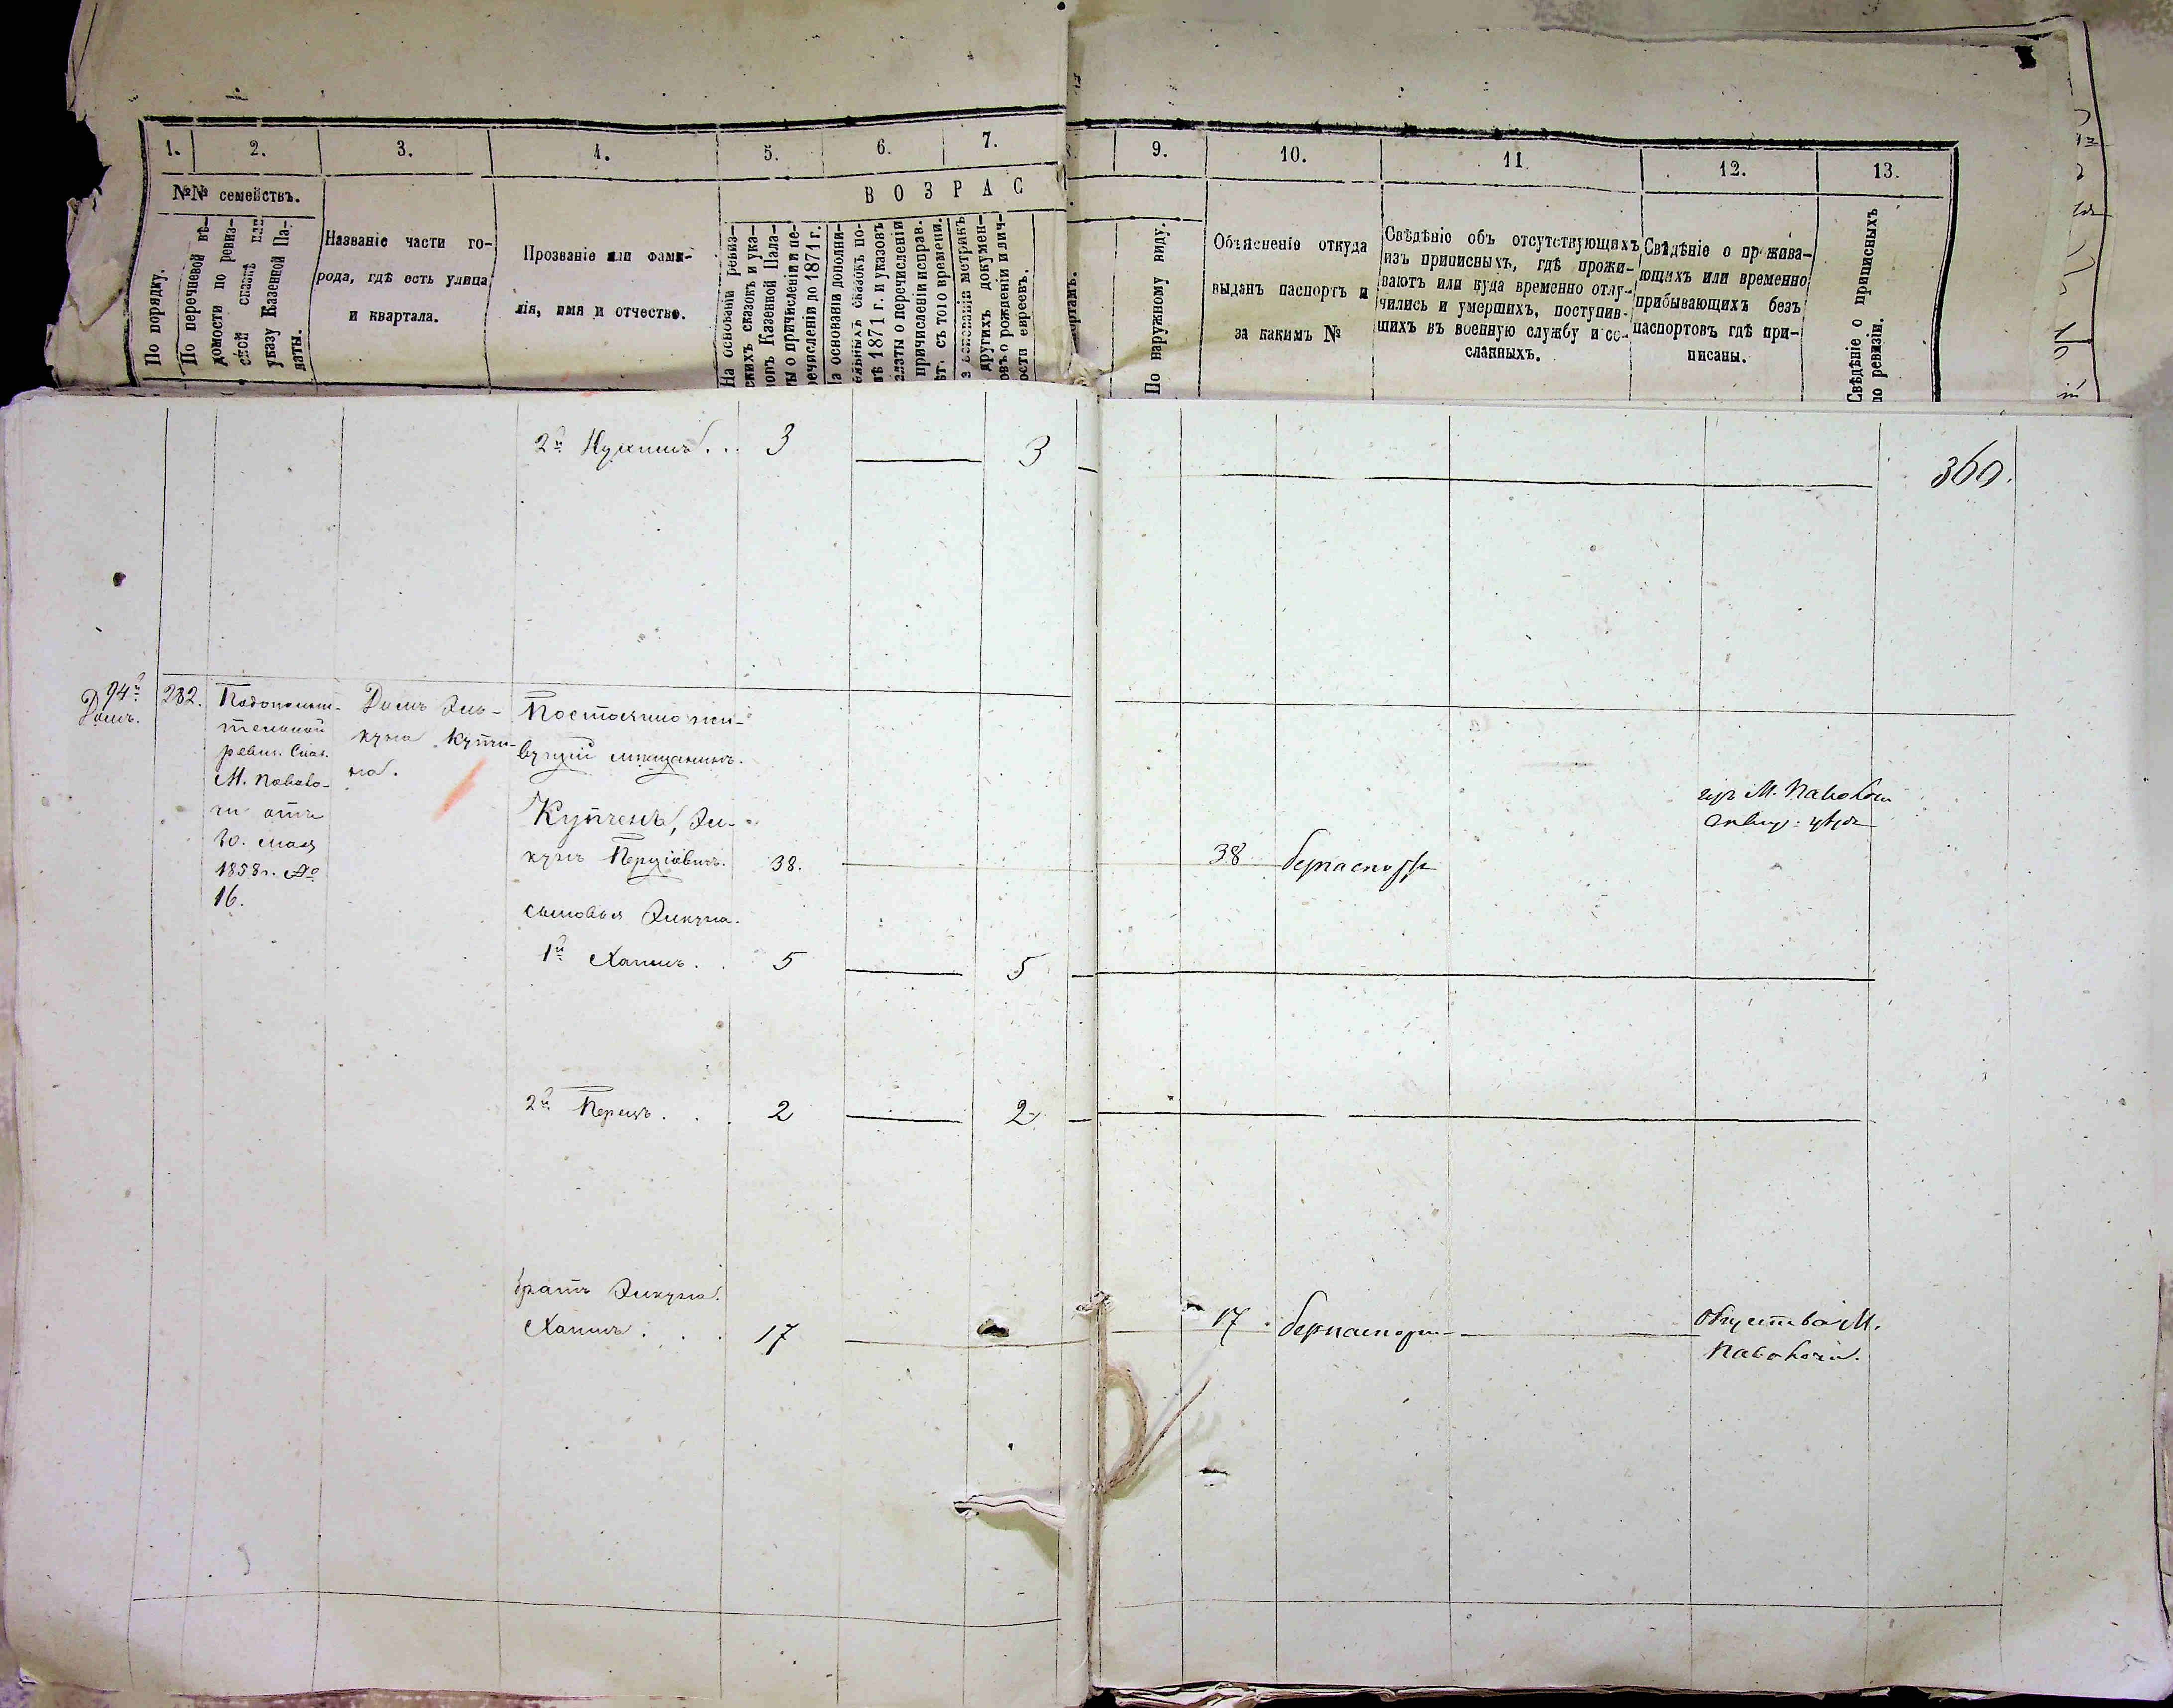 1.
2.
3.
4.
5.
6.
7.
8.
9.
10.
11
12.
13.
№№ семействъ.
По порядку.
По перечневой вѣ-
домости по ревиз-
ской сказкѣ или
указу Казенной Па-
латы.
Названіе части го-
рода, гдѣ есть улица
и квартала.
Прозваніе или фами-
лія, имя и отчество.
ВОЗРАС
На основаніи ревиз-
скихъ сказокъ и ука-
зовъ Казенной Пала-
ты о причисленіи и пе-
речисленіи до 1871 г.
На основаніи дополни-
ельныхъ сказокъ по-
лѣ 1871 г. и указовъ
алаты о перечисленіи
причисленіи исправ.
ѣт. съ того времени.
а основаніи метрикъ
другихъ докумен-
овъ о рожденіи и лич-
ости евреевъ.
По наружному виду.
Объясненіе откуда
выданъ паспортъ и
за какимъ №
Свѣдѣніе объ отсутствующихъ
изъ приписныхъ, гдѣ прожи-
ваютъ или куда временно отлу-
чились и умершихъ, поступив-
шихъ въ военную службу и со-
сланныхъ.
Свѣдѣніе о прожива-
ющихъ или временно
прибывающихъ безъ
паспортовъ гдѣ при-
писаны.
Свѣдѣніе о приписныхъ
по ревизіи.
2й . . 3 3
360.
94й
Домъ.
282.
По дополни-
тельной
ревиз. Сказ.
М. Паволо-
чи отъ
30. мая
1858 г. №
16.
Домъ Эль-
куна Купче-
на.
Постоянно жи-
вущій мѣщанинъ.
Купченъ, Эль-
кунъ Перціовичъ. 38. 38
М. Паволочи
сыновья Элькуна.
1й Хаимъ. . 5 5
2й Перецъ. . . 2 2
братъ Элькуна.
Хаимъ . . . 17 17 безпаспорт-
Общества М.
Паволочи.